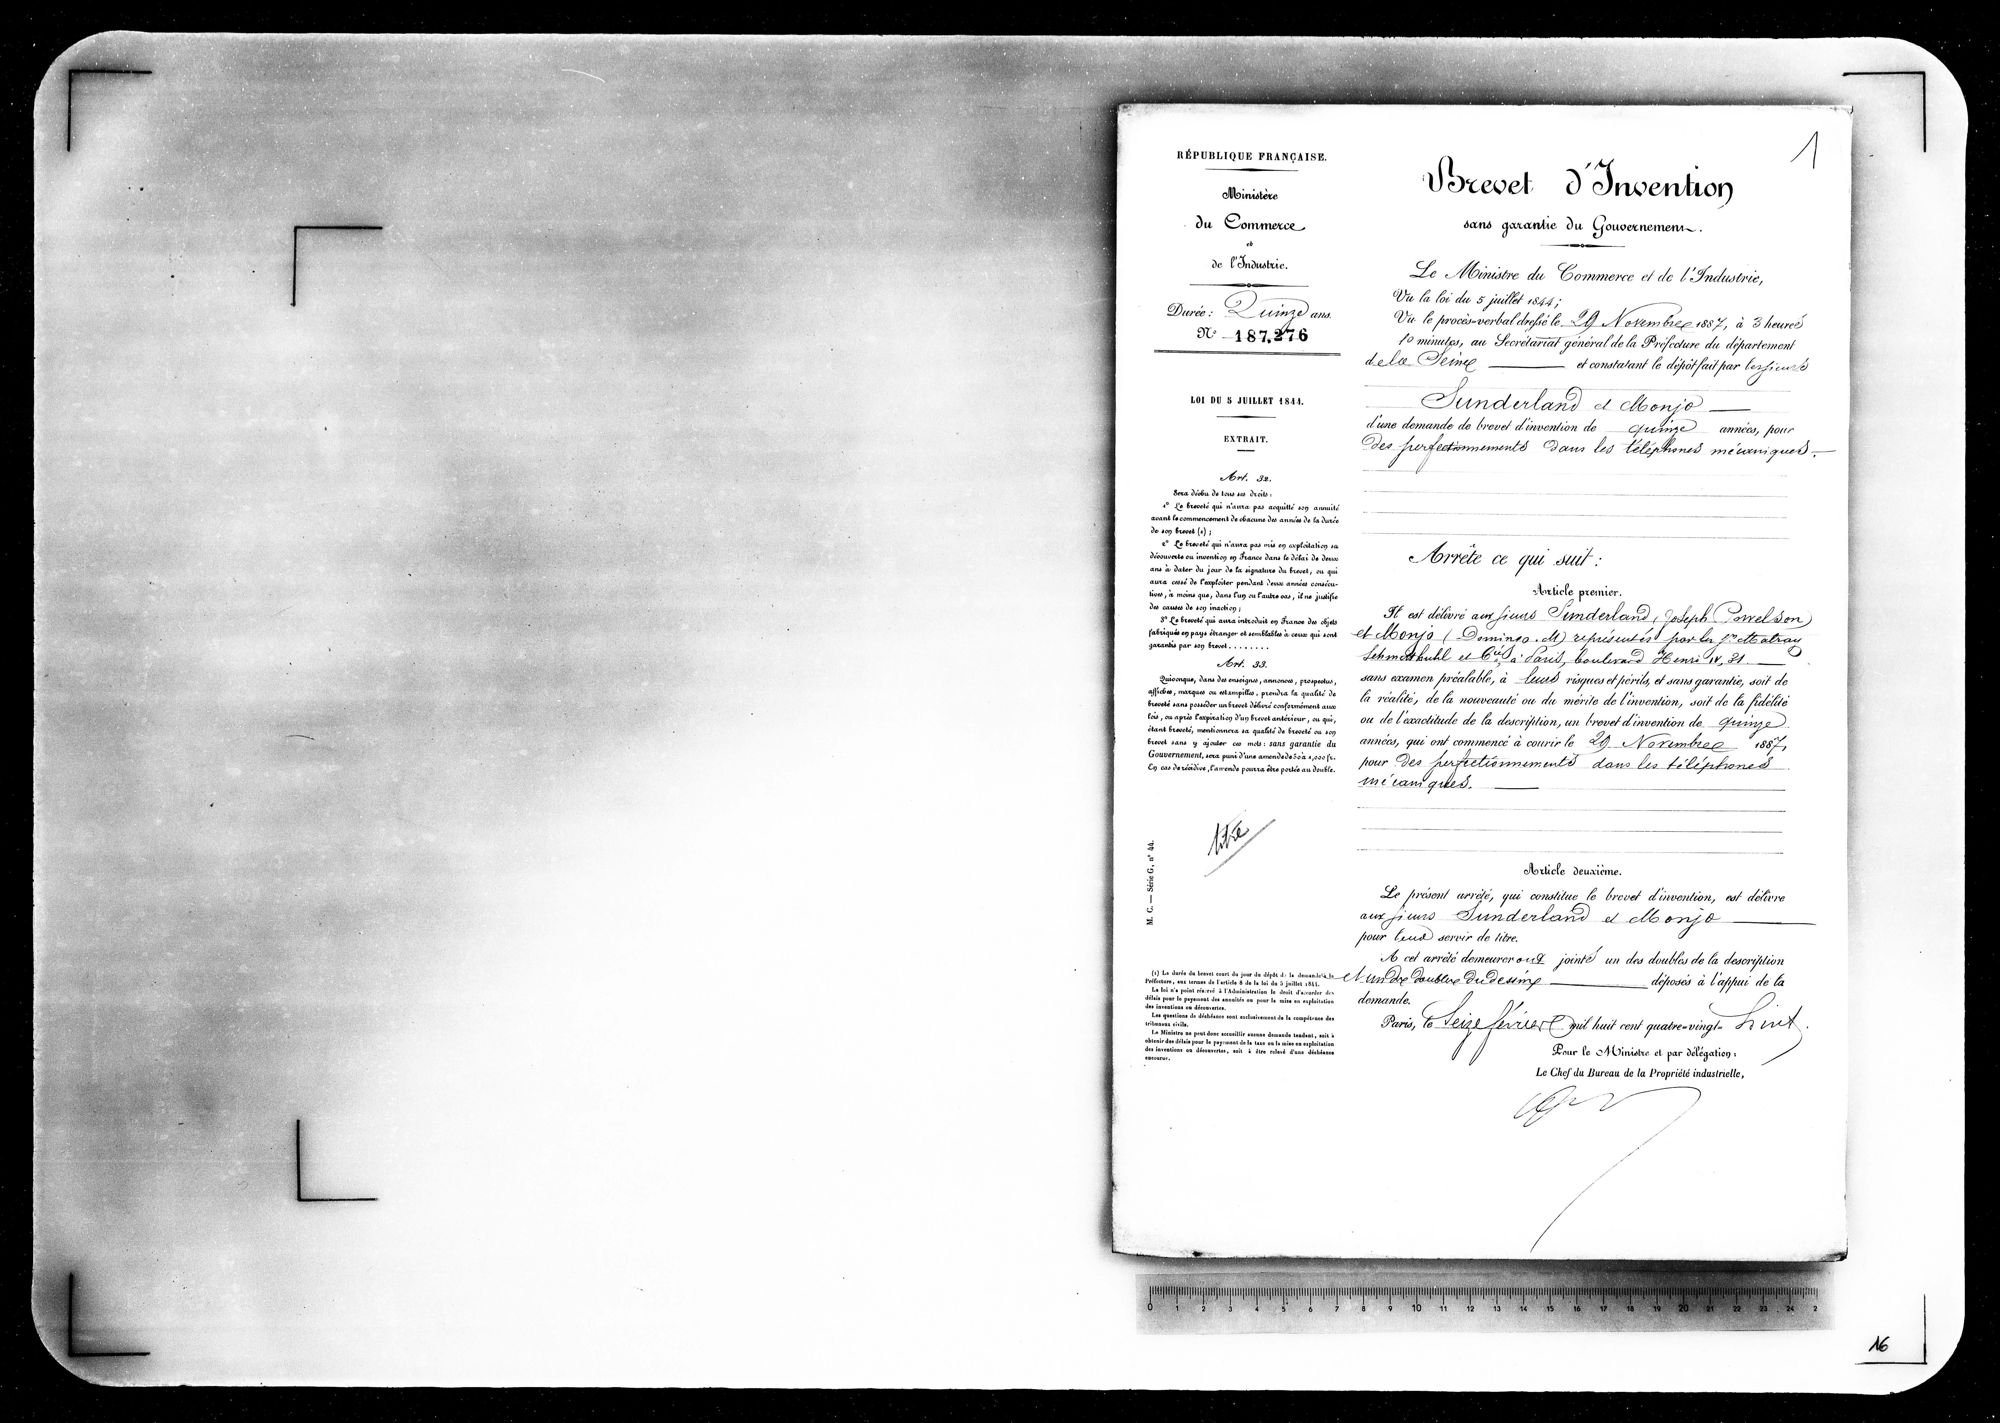 1
RÉPUBLIQUE FRANÇAISE.
Ministère
du Commerce
et
de l'Industrie.
Durée : Quinze ans.
N° 187,276
LOI DU 5 JUILLET 1844.
EXTRAIT.
Art. 32.
Sera déchu de tous ses droits :
1° Le breveté qui n'aura pas acquitté son annuité
avant le commencement de chacune des années de la durée
de son brevet (1) ;
2° Le breveté qui n'aura pas mis en exploitation sa
découverte ou invention en France dans le délai de deux
ans à dater du jour de la signature du brevet, ou qui
aura cessé de l'exploiter pendant deux années consécu-
tives, à moins que, dans l'un ou l'autre cas, il ne justifie
des causes de son inaction ;
3° Le breveté qui aura introduit en France des objets
fabriqués en pays étranger et semblables à ceux qui sont
garantis par son brevet . . . . . . . .
Art. 33.
Quiconque, dans des enseignes, annonces, prospectus,
affiches, marques ou estampilles, prendra la qualité de
breveté sans posséder un brevet délivré conformément aux
lois, ou après l'expiration d'un brevet antérieur, ou qui,
étant breveté, mentionnera sa qualité de breveté ou son
brevet sans y ajouter ces mots : sans garantie du
Gouvernement, sera puni d'une amende de 50 à 1,000 fr.
En cas de récidive, l'amende pourra être portée au double.
titre
M. C. — Série G, n° 44.
(1) La durée du brevet court du jour du dépôt de la demande à la
Préfecture, aux termes de l'article 8 de la loi du 5 juillet 1844.
La loi n'a point réservé à l'Administration le droit d'accorder des
délais pour le payement des annuités ou pour la mise en exploitation
des inventions ou découvertes.
Les questions de déchéance sont exclusivement de la compétence des
tribunaux civils.
Le Ministre ne peut donc accueillir aucune demande tendant, soit à
obtenir des délais pour le payement de la taxe ou la mise en exploitation
des inventions ou découvertes, soit à être relevé d'une déchéance
encourue.
Brevet d'Invention
sans garantie du Gouvernement.
Le Ministre du Commerce et de l'Industrie,
Vu la loi du 5 juillet 1844 ;
Vu le procès-verbal dressé le 29 Novembre 1887, à 3 heures
10 minutes, au Secrétariat général de la Préfecture du département
de la Seine et constatant le dépôt fait par les sieurs
Sunderland et Monjo
d'une demande de brevet d'invention de quinze années, pour
des perfectionnements dans les téléphones mécaniques.
Arrête ce qui suit :
Article premier.
Il est délivré aux sieurs Sunderland, (Joseph
et Monjo (Domingo. M) représentés par les Srs Matray
Schmittbuhl et Cie, à Paris, boulevard Henri IV, 31
sans examen préalable, à leurs risques et périls, et sans garantie, soit de
la réalité, de la nouveauté ou du mérite de l'invention, soit de la fidélité
ou de l'exactitude de la description, un brevet d'invention de quinze
années, qui ont commencé à courir le 29 Novembre 1887,
pour des perfectionnements dans les téléphones
mécaniques.
Article deuxième.
Le présent arrêté, qui constitue le brevet d'invention, est délivré
aux sieurs Sunderland et Monjo
pour leur servir de titre.
A cet arrêté demeureront joints un des doubles de la description
et un des doubles du dessin déposés à l'appui de la
demande.
Paris, le Seize février mil huit cent quatre-vingt-huit.
Pour le Ministre et par délégation :
Le Chef du Bureau de la Propriété industrielle,
0 1 2 3 4 5 6 7 8 9 10 11 12 13 14 15 16 17 18 19 20 21 22 23 24 2
16